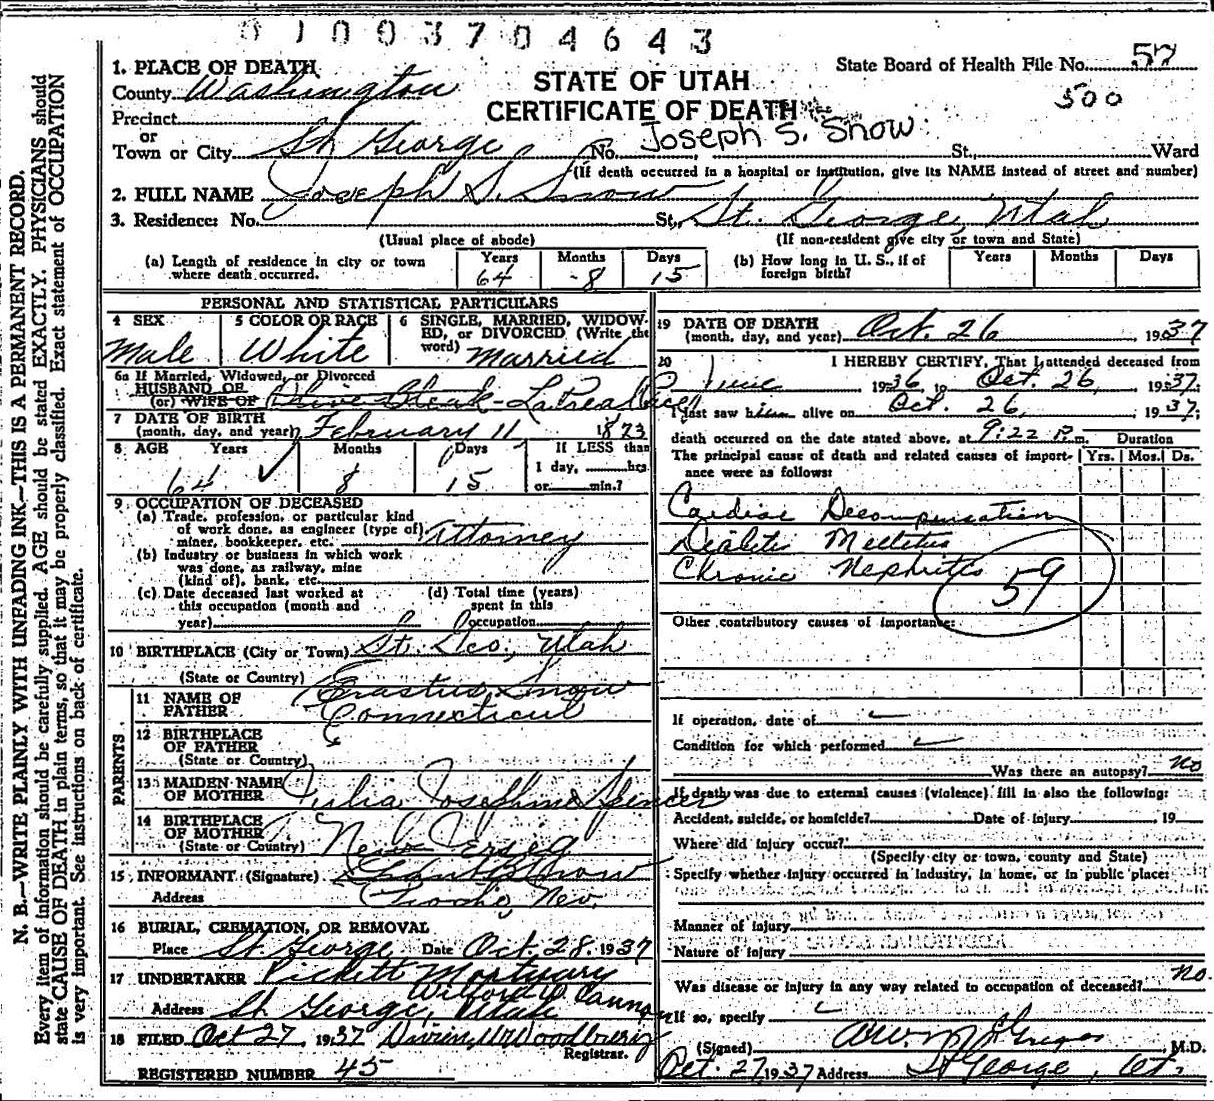 01003704643
N. B.—WRITE PLAINLY WITH UNFADING INK—THIS IS A PERMANENT RECORD.
Every item of information should be carefully supplied. AGE should be stated EXACTLY. PHYSICIANS should
state CAUSE OF DEATH in plain terms, so that it may be properly classified. Exact statement of OCCUPATION
is very important. See instructions on back of certificate.
1. PLACE OF DEATH
County Washington
Precinct
or
Town or City St George
STATE OF UTAH
CERTIFICATE OF DEATH
State Board of Health File No. 57
500
No. Joseph S. Snow St., Ward
(If death occurred in a hospital or institution, give its NAME instead of street and number)
2. FULL NAME Joseph S. Snow
3. Residence: No. St. St. George, Utah
(Usual place of abode) (If non-resident give city or town and State)
(a) Length of residence in city or town where death occurred. Years 64 Months 8 Days 15
(b) How long in U. S., if of foreign birth? Years Months Days
PERSONAL AND STATISTICAL PARTICULARS
4 SEX Male
5 COLOR OR RACE White
6 SINGLE, MARRIED, WIDOWED, or DIVORCED (Write the word) Married
6a If Married, Widowed, or Divorced
HUSBAND OF
(or) WIFE OF Olive
7 DATE OF BIRTH
(month, day, and year) February 11 1873
8 AGE Years 64 Months 8 Days 15 If LESS than
1 day, hrs.
or min.?
9 OCCUPATION OF DECEASED
(a) Trade, profession, or particular kind
of work done, as engineer (type of)
miner, bookkeeper, etc. Attorney
(b) Industry or business in which work
was done, as railway, mine
(kind of), bank, etc.
(c) Date deceased last worked at
this occupation (month and
year)
(d) Total time (years)
spent in this
occupation
10 BIRTHPLACE (City or Town) St. Geo., Utah
(State or Country)
PARENTS
11 NAME OF FATHER Erastus Snow
12 BIRTHPLACE OF FATHER Connecticut
(State or Country)
13 MAIDEN NAME OF MOTHER Julia Josephine Spencer
14 BIRTHPLACE OF MOTHER
(State or Country) New Jersey
15 INFORMANT (Signature) Snow
Address Pioche, Nev.
16 BURIAL, CREMATION, OR REMOVAL
Place St. George Date Oct. 28, 1937
17 UNDERTAKER Pickett Mortuary
Cannon
Address St George, Utah
18 FILED Oct 27, 1937 Woodbury
Registrar.
REGISTERED NUMBER 45
19 DATE OF DEATH
(month, day, and year) Oct. 26, 1937
20 I HEREBY CERTIFY, That I attended deceased from
June 1936, to Oct. 26, 1937;
I last saw him alive on Oct. 26, 1937;
death occurred on the date stated above, at 9:22 P.m.
Duration
The principal cause of death and related causes of importance were as follows: Yrs. Mos. Ds.
Cardiac Decompensation
Diabetis Mellitus
Chronic Nephritis
59
Other contributory causes of importance:
If operation, date of
Condition for which performed
Was there an autopsy? no
If death was due to external causes (violence) fill in also the following:
Accident, suicide, or homicide? Date of injury , 19
Where did injury occur?
(Specify city or town, county and State)
Specify whether injury occurred in industry, in home, or in public place:
Manner of injury
Nature of injury
Was disease or injury in any way related to occupation of deceased? no
If so, specify
(Signed) McGregor M.D.
Oct. 27, 1937 Address St George, Ut.